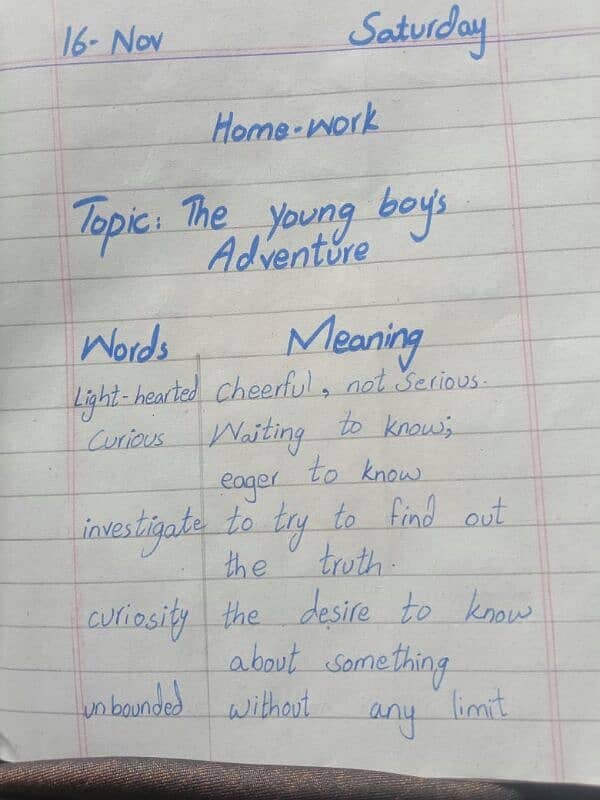 16- Nov Saturday
Home-work
Topic: The young boy's
Adventure
Words Meaning
Light-hearted Cheerful, not serious.
Curious Waiting to know;
eager to know
investigate to try to find out
the truth.
curiosity the desire to know
about something
unbounded without any limit